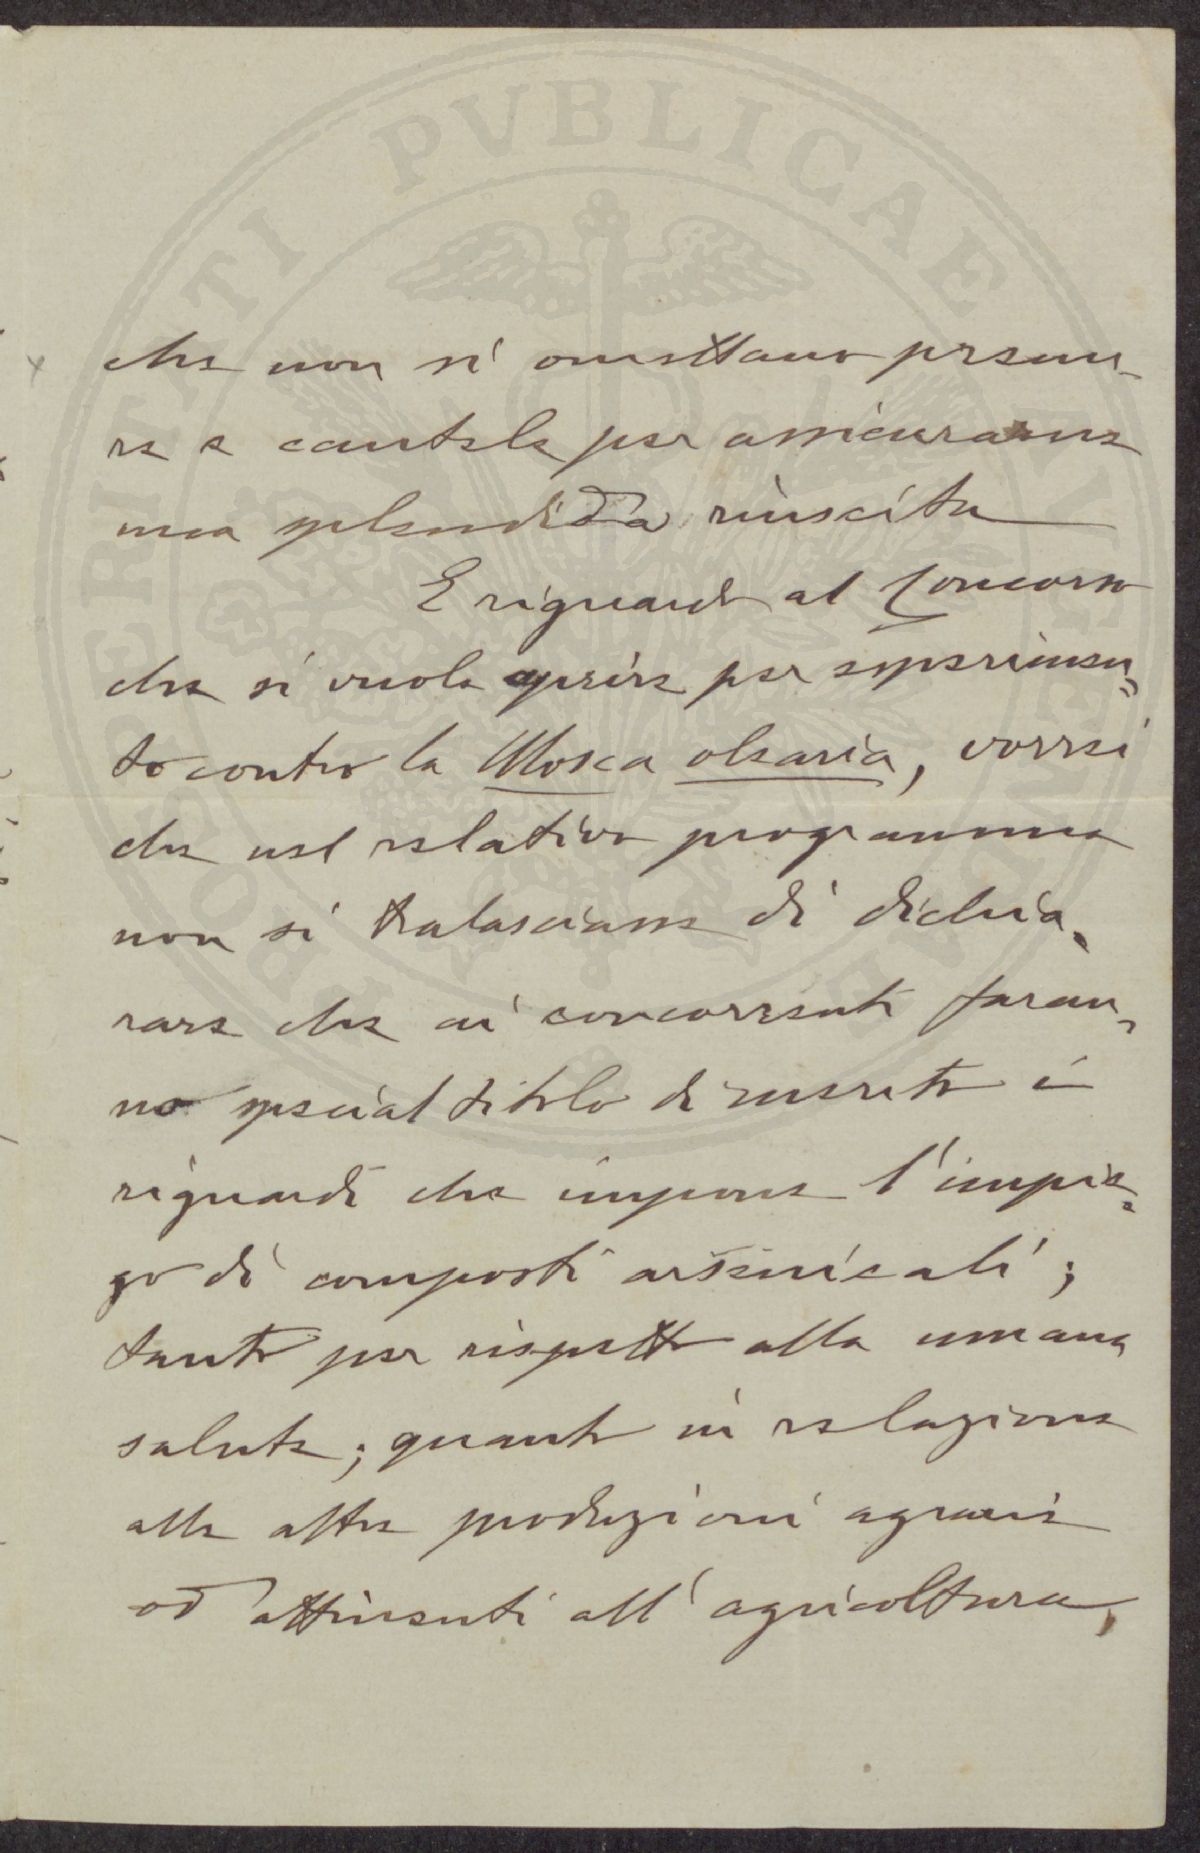 PROSPERITATI PVBLICAE AVGENDAE
che non si omettano premu-
re e cautele per assicurarne
una splendida riuscita
E riguardo al Concorso
che si vuole aprire per esperimen=
to contro la Mosca olearia, vorrei
che nel relativo programma
non si tralasciasse di dichia-
rare che ai concorrenti faran-
no special titolo di merito i
riguardi che impone l'impie-
go di composti arsenicali;
tanto per rispetto alla umana
salute; quanto in relazione
alle altre produzioni agrarie
od attinenti all'agricoltura,